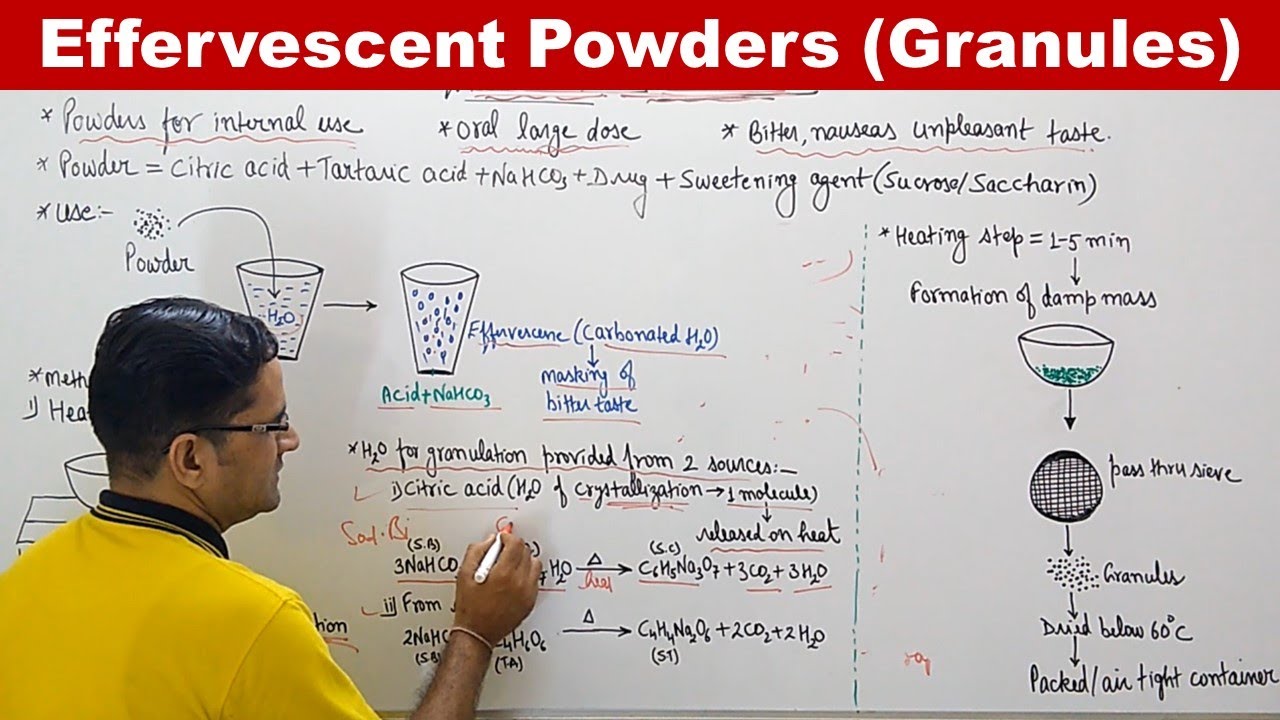 Effervescent Powders (Granules)
* Powders for internal use
* Oral large dose
* Bitter, nauseas unpleasant taste.
* Powder = Citric acid + Tartaric acid + NaHCO3 + Drug + Sweetening agent (Sucrose/Saccharin)
* Use:-
Powder
H2O
Effervescene (Carbonated H2O)
masking of
bitter taste
Acid+NaHCO3
* Meth
i) Hea
* H2O for granulation provided from 2 sources:-
i) Citric acid (H2O of crystallization → 1 molecule)
released on heat
Sod. Bi
(S.B)
(S.C)
3NaHCO
7H2O Δ → C6H5Na3O7 + 3CO2 + 3H2O
heat
ii) From
tion
2NaHC
4H6O6 Δ → C4H4Na2O6 + 2CO2 + 2H2O
(S.B)
(T.A)
(ST)
* Heating step = 1-5 min
Formation of damp mass
pass thru sieve
Granules
Dried below 60°C
Packed/air tight container